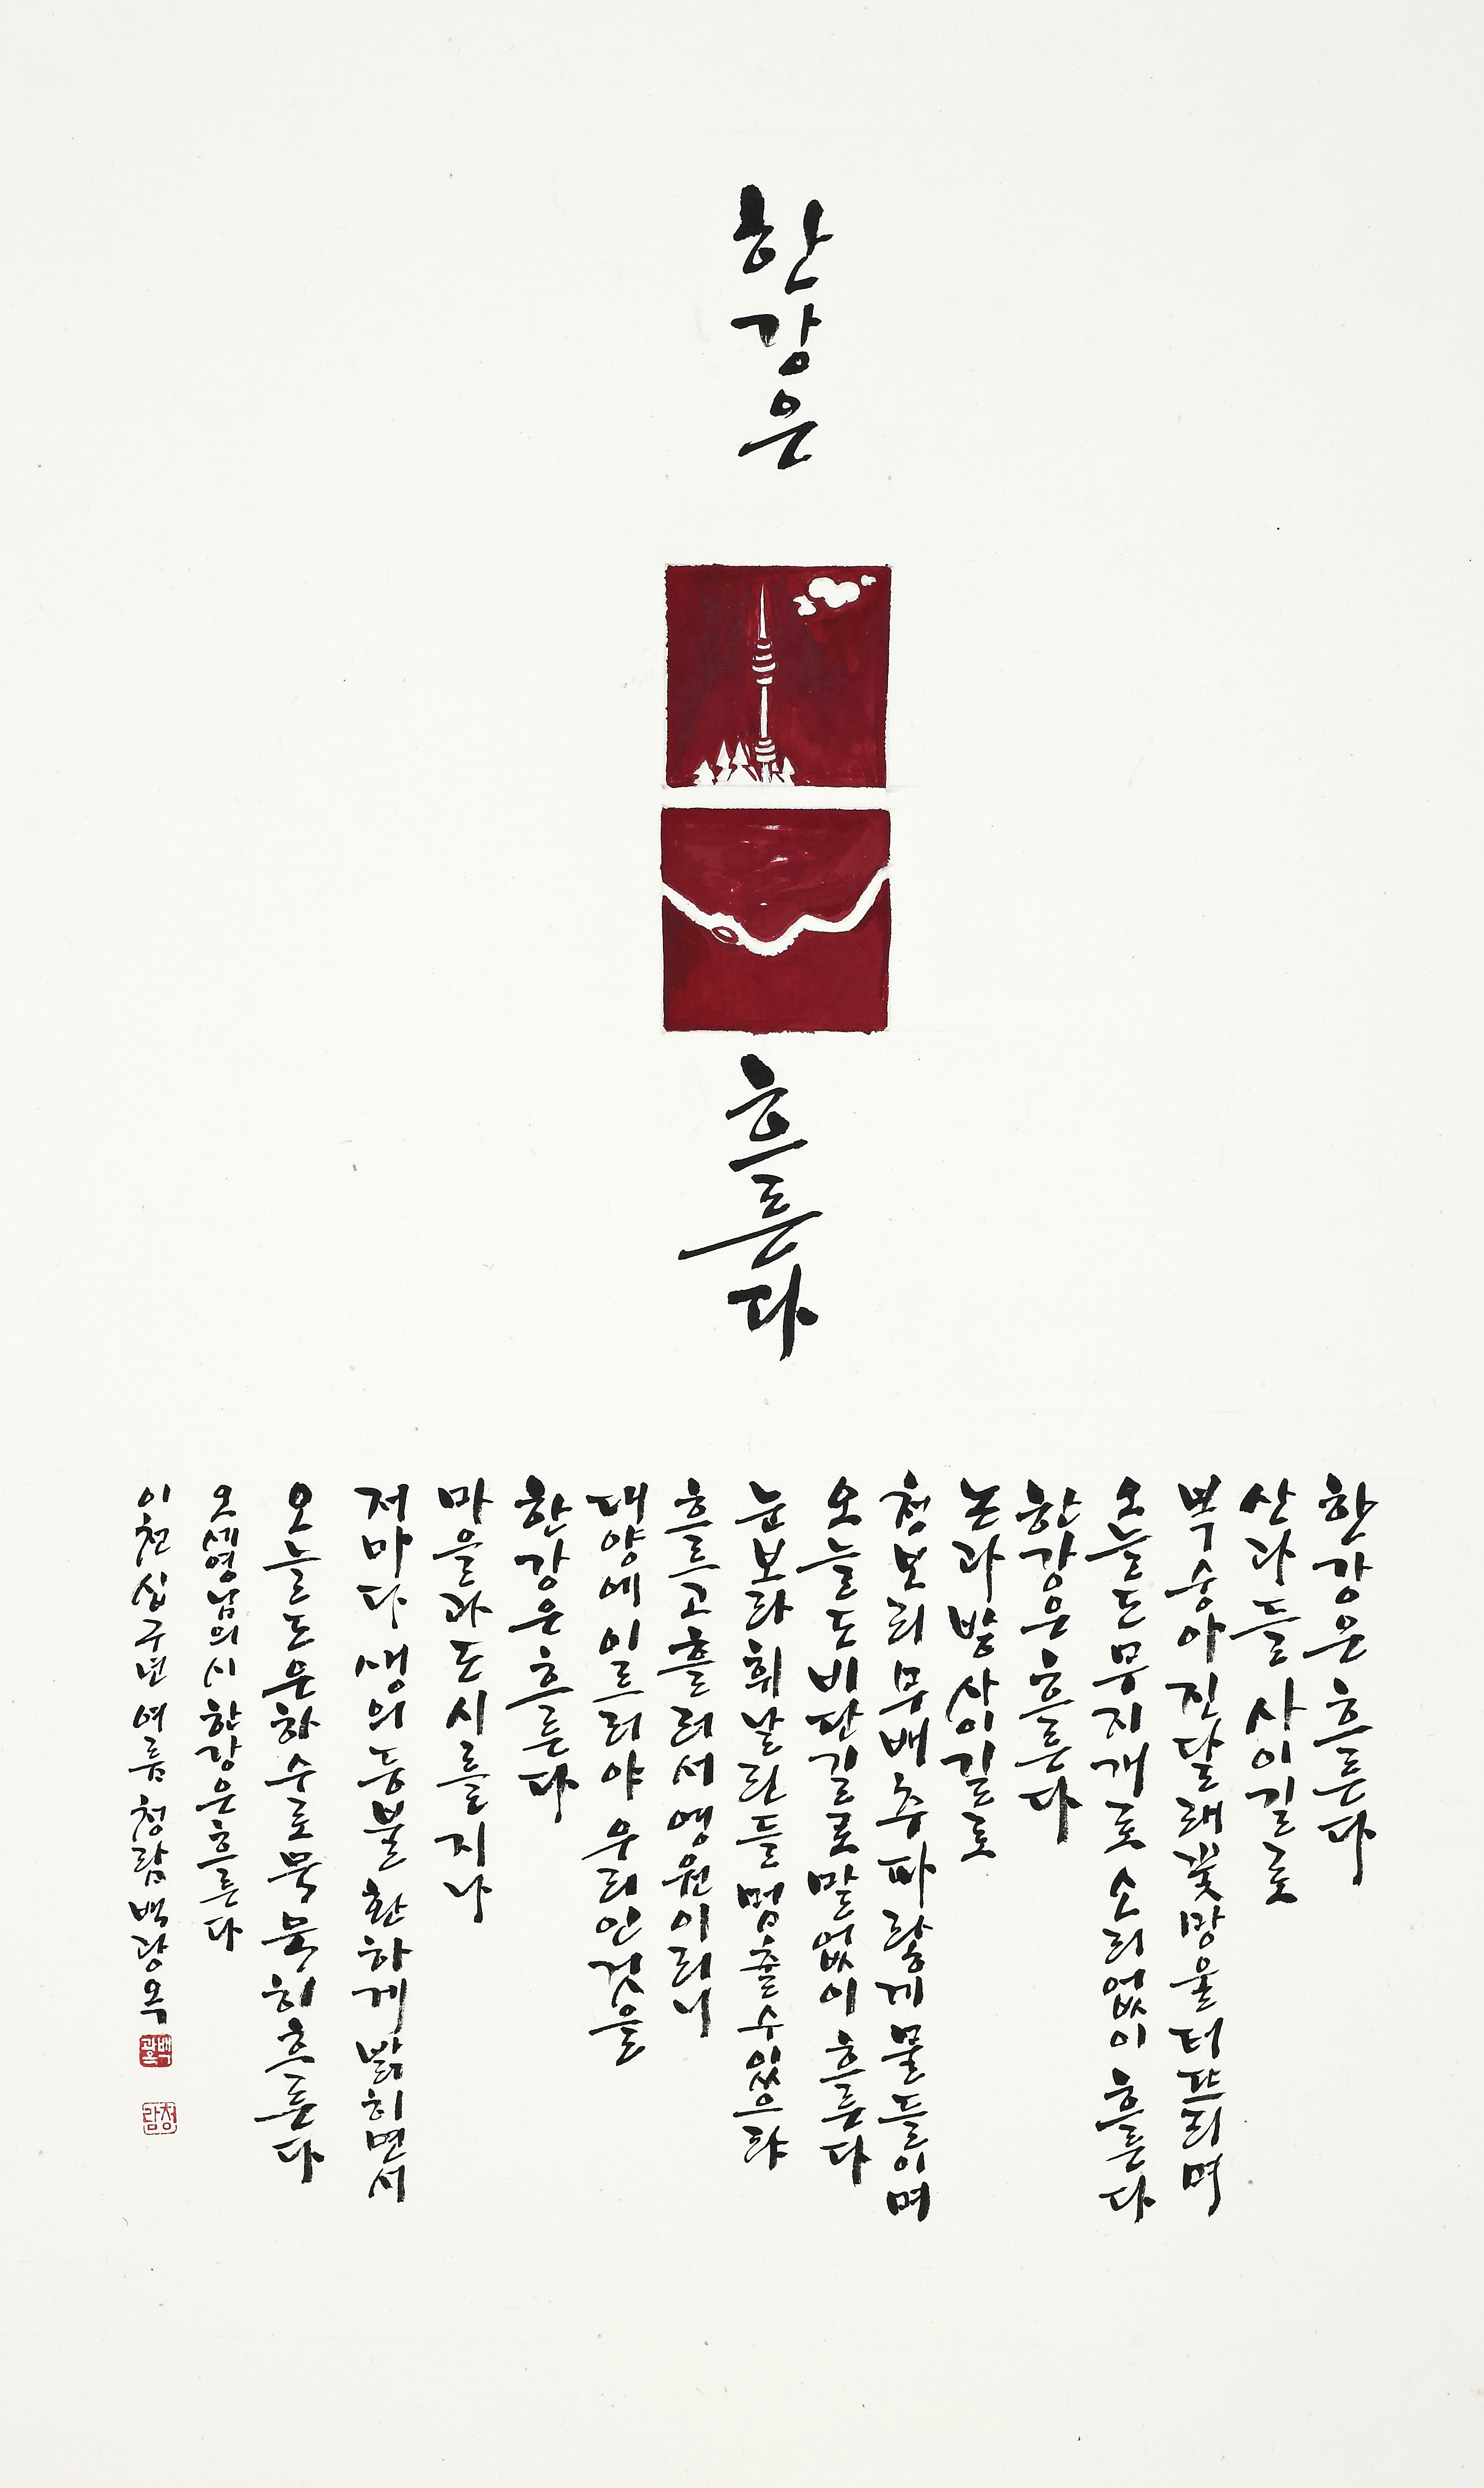 한강은
흐른다
한강은 흐른다
산과 들 사이길로
복숭아 진달래 꽃망울 터뜨리며
오늘도 무지개로 소리없이 흐른다
한강은 흐른다
논과 밭 사이길로
청보리 무 배추 파랗게 물들이며
오늘도 비단길로 말없이 흐른다
눈보라 휘날린들 멈출 수 있으랴
흐르고 흘러서 영원이러니
대양에 이르러야 우리인 것을
한강은 흐른다
마을과 도시를 지나
저마다 생의 등불 환하게 밝히면서
오늘도 은하수로 묵묵히 흐른다
오세영님의 시 한강은 흐른다
이천십구년 여름 청람 백광옥
백광옥
청람